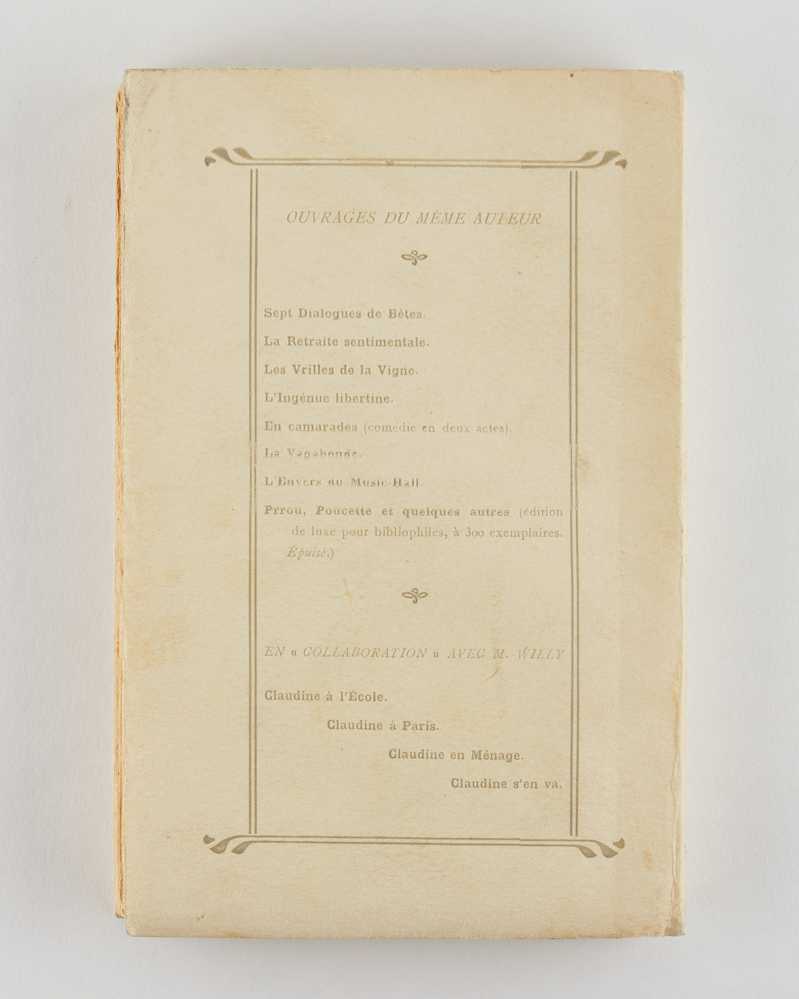 OUVRAGES DU MÊME AUTEUR
Sept Dialogues de Bêtes.
La Retraite sentimentale.
Les Vrilles de la Vigne.
L'Ingénue libertine.
En camarades (comédie en deux actes).
La Vagabonde.
L'Envers du Music-Hall.
Prrou, Poucette et quelques autres (édition
de luxe pour bibliophiles, à 300 exemplaires.
Épuisé.)
EN « COLLABORATION » AVEC M. WILLY
Claudine à l'École.
Claudine à Paris.
Claudine en Ménage.
Claudine s'en va.